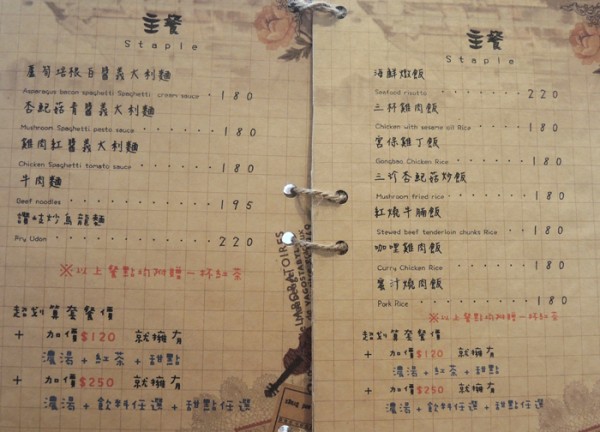 主餐
Staple
蘆筍培根白醬義大利麵
Asparagus bacon spaghetti Spaghetti cream sauce 180
杏鮑菇青醬義大利麵
Mushroom Spaghetti pesto sauce 180
雞肉紅醬義大利麵
Chicken Spaghetti tomato sauce 180
牛肉麵
Beef noodles 195
讚岐炒烏龍麵
Fry Udon 220
※以上餐點均附贈一杯紅茶
超划算套餐價
+ 加價$120 就擁有
濃湯+紅茶+甜點
+ 加價$250 就擁有
濃湯+飲料任選+甜點任選
主餐
Staple
海鮮燉飯
Seafood risotto 220
三杯雞肉飯
Chicken with sesame oil Rice 180
宮保雞丁飯
Gongbao Chicken Rice 180
三珍杏鮑菇炒飯
Mushroom fried rice 180
紅燒牛腩飯
Stewed beef tenderloin chunks Rice 180
咖哩雞肉飯
Curry Chicken Rice 180
蜜汁燒肉飯
Pork Rice 180
※以上餐點均附贈一杯紅茶
超划算套餐價
+ 加價$120 就擁有
濃湯+紅茶+甜點
+ 加價$250 就擁有
濃湯+飲料任選+甜點任選